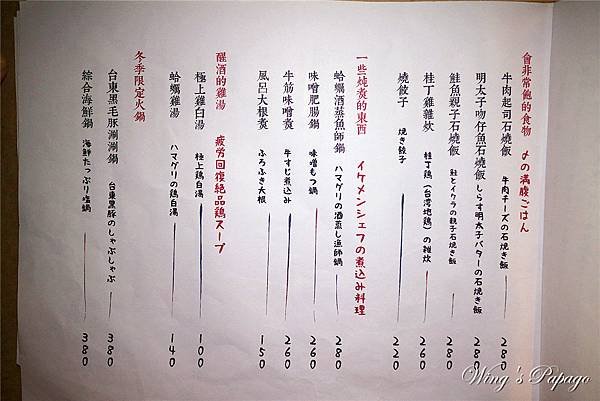 會非常飽的食物 〆の満腹ごはん
牛肉起司石燒飯 牛肉チーズの石焼き飯 280
明太子吻仔魚石燒飯 しらす明太子バターの石焼き飯 280
鮭魚親子石燒飯 鮭とイクラの親子石焼き飯 280
桂丁雞雜炊 桂丁鶏(台湾地鶏)の雑炊 260
燒餃子 焼き餃子 220
一些炖煮的東西 イケメンシェフの煮込み料理
蛤蠣酒蒸魚師鍋 ハマグリの酒蒸し漁師鍋 280
味噌肥腸鍋 味噌もつ鍋 260
牛筋味噌煮 牛すじ煮込み 260
風呂大根煮 ふろふき大根 150
醒酒的雞湯 疲労回復絶品鶏スープ
極上雞白湯 極上鶏白湯 100
蛤蠣雞湯 ハマグリの鶏白湯 140
冬季限定火鍋
台東黑毛豚涮涮鍋 台東黒豚のしゃぶしゃぶ 380
綜合海鮮鍋 海鮮たっぷり塩鍋 380
Wing's Papago